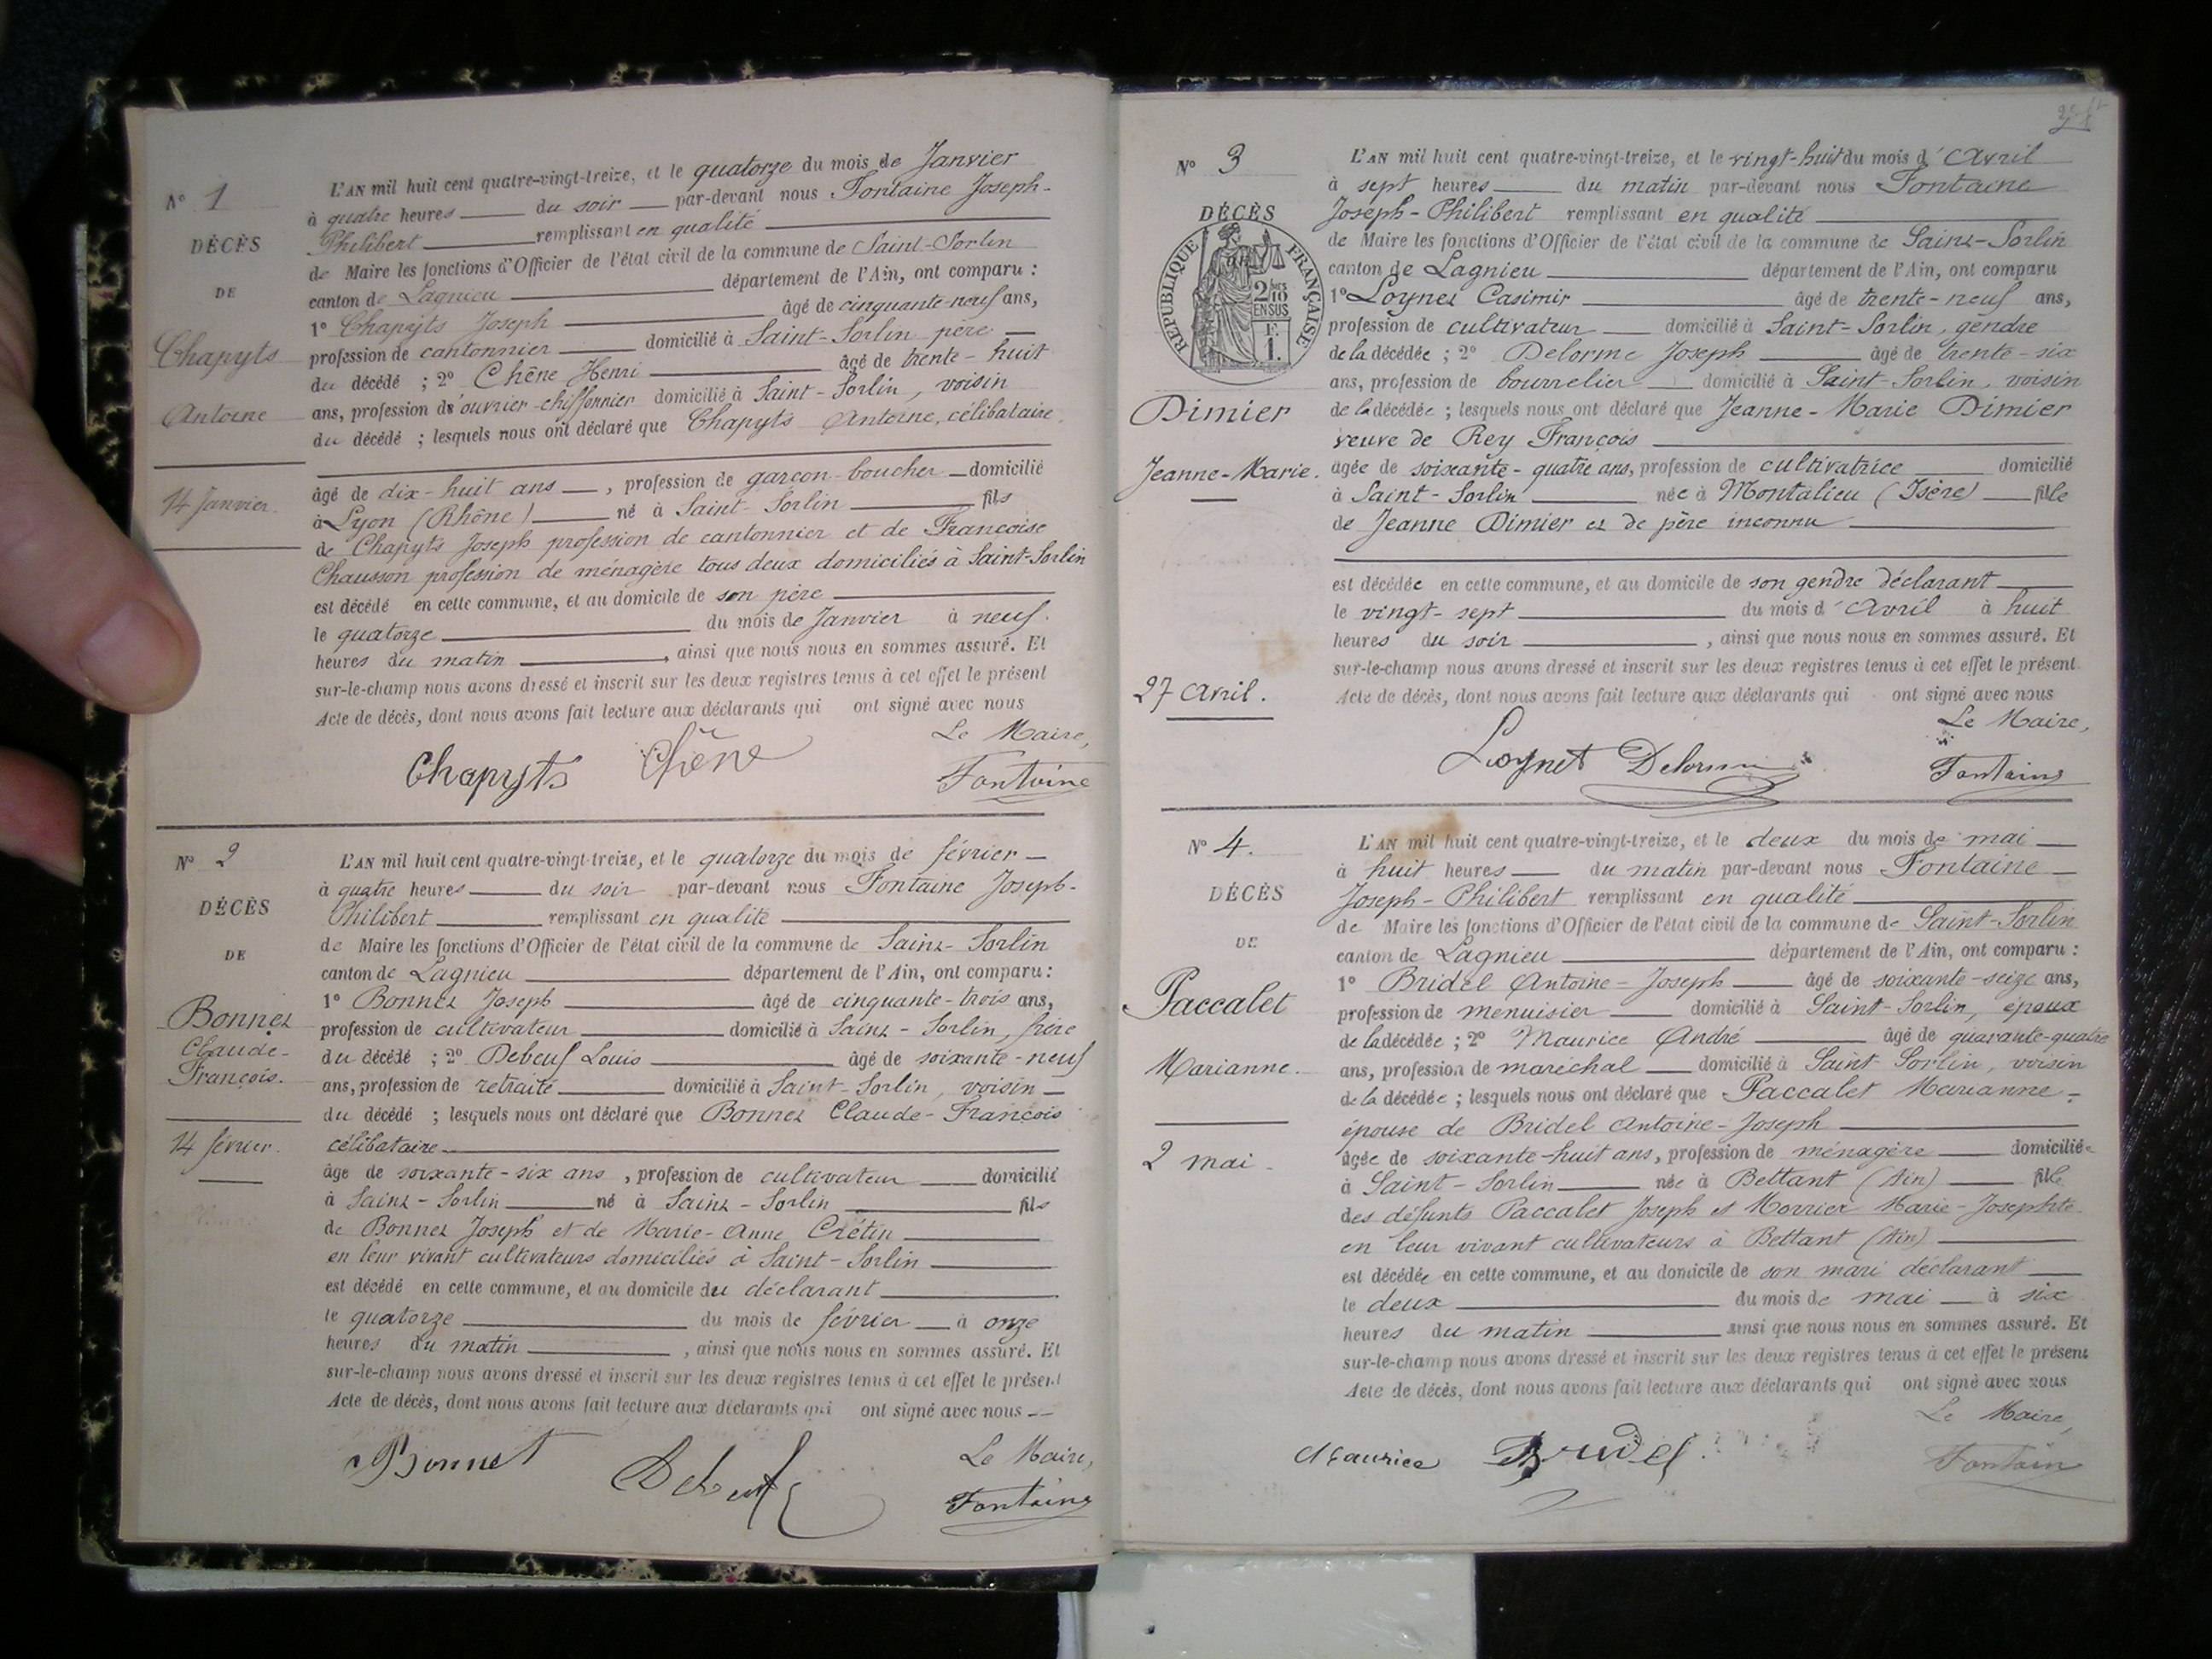 N° 1
DÉCÈS
DE
Chapyts
Antoine
14 Janvier.
L'AN mil huit cent quatre-vingt-treize, et le quatorze du mois de Janvier
à quatre heures du soir par-devant nous Fontaine Joseph-
Philibert remplissant en qualité
de Maire les fonctions d'Officier de l'état civil de la commune de Saint-Sorlin
canton de Lagnieu département de l'Ain, ont comparu :
1° Chapyts Joseph âgé de cinquante-neuf ans,
profession de cantonnier domicilié à Saint-Sorlin père
du décédé ; 2° Chêne Henri âgé de trente-huit
ans, profession d'ouvrier-chiffonnier domicilié à Saint-Sorlin, voisin
du décédé ; lesquels nous ont déclaré que Chapyts Antoine, célibataire
âgé de dix-huit ans, profession de garçon-boucher domicilié
à Lyon (Rhône) né à Saint-Sorlin fils
de Chapyts Joseph profession de cantonnier et de Françoise
Chausson profession de ménagère tous deux domiciliés à Saint-Sorlin
est décédé en cette commune, et au domicile de son père
le quatorze du mois de Janvier à neuf
heures du matin, ainsi que nous nous en sommes assuré. Et
sur-le-champ nous avons dressé et inscrit sur les deux registres tenus à cet effet le présent
Acte de décès, dont nous avons fait lecture aux déclarants qui ont signé avec nous
Le Maire,
Chapyts Chêne Fontaine
N° 2
DÉCÈS
DE
Bonnet
Claude-
François.
14 février.
L'AN mil huit cent quatre-vingt-treize, et le quatorze du mois de février
à quatre heures du soir par-devant nous Fontaine Joseph-
Philibert remplissant en qualité
de Maire les fonctions d'Officier de l'état civil de la commune de Saint-Sorlin
canton de Lagnieu département de l'Ain, ont comparu :
1° Bonnet Joseph âgé de cinquante-trois ans,
profession de cultivateur domicilié à Saint-Sorlin, frère
du décédé ; 2° Debeuf Louis âgé de soixante-neuf
ans, profession de retraité domicilié à Saint-Sorlin, voisin
du décédé ; lesquels nous ont déclaré que Bonnet Claude-François
célibataire
âgé de soixante-six ans, profession de cultivateur domicilié
à Saint-Sorlin né à Saint-Sorlin fils
de Bonnet Joseph et de Marie-Anne Crétin
en leur vivant cultivateurs domiciliés à Saint-Sorlin
est décédé en cette commune, et au domicile du déclarant
le quatorze du mois de février à onze
heures du matin, ainsi que nous nous en sommes assuré. Et
sur-le-champ nous avons dressé et inscrit sur les deux registres tenus à cet effet le présent
Acte de décès, dont nous avons fait lecture aux déclarants qui ont signé avec nous
Le Maire,
Bonnet Debeuf Fontaine
N° 3
DÉCÈS
RÉPUBLIQUE FRANÇAISE
2/10 EN SUS
F. 1.
Dimier
Jeanne-Marie.
27 Avril.
L'AN mil huit cent quatre-vingt-treize, et le vingt-huit du mois d'Avril
à sept heures du matin par-devant nous Fontaine
Joseph-Philibert remplissant en qualité
de Maire les fonctions d'Officier de l'état civil de la commune de Saint-Sorlin
canton de Lagnieu département de l'Ain, ont comparu
1° Loynet Casimir âgé de trente-neuf ans,
profession de cultivateur domicilié à Saint-Sorlin, gendre
de la décédée ; 2° Delorme Joseph âgé de trente-six
ans, profession de bourrelier domicilié à Saint-Sorlin, voisin
de la décédée ; lesquels nous ont déclaré que Jeanne-Marie Dimier
veuve de Rey François
âgée de soixante-quatre ans, profession de cultivatrice domicilié
à Saint-Sorlin née à Montalieu (Isère) fille
de Jeanne Dimier et de père inconnu
est décédée en cette commune, et au domicile de son gendre déclarant
le vingt-sept du mois d'Avril à huit
heures du soir, ainsi que nous nous en sommes assuré. Et
sur-le-champ nous avons dressé et inscrit sur les deux registres tenus à cet effet le présent
Acte de décès, dont nous avons fait lecture aux déclarants qui ont signé avec nous
Le Maire,
Loynet Delorme Fontaine
N° 4.
DÉCÈS
DE
Paccalet
Marianne.
2 mai.
L'AN mil huit cent quatre-vingt-treize, et le deux du mois de mai
à huit heures du matin par-devant nous Fontaine
Joseph-Philibert remplissant en qualité
de Maire les fonctions d'Officier de l'état civil de la commune de Saint-Sorlin
canton de Lagnieu département de l'Ain, ont comparu :
1° Bridel Antoine-Joseph âgé de soixante-seize ans,
profession de menuisier domicilié à Saint-Sorlin, époux
de la décédée ; 2° Maurice André âgé de quarante-quatre
ans, profession de maréchal domicilié à Saint-Sorlin, voisin
de la décédée ; lesquels nous ont déclaré que Paccalet Marianne
épouse de Bridel Antoine-Joseph
âgée de soixante-huit ans, profession de ménagère domiciliée
à Saint-Sorlin née à Bettant (Ain) fille
des défunts Paccalet Joseph et Morrier Marie-Josephte
en leur vivant cultivateurs à Bettant (Ain)
est décédée en cette commune, et au domicile de son mari déclarant
le deux du mois de mai à six
heures du matin ainsi que nous nous en sommes assuré. Et
sur-le-champ nous avons dressé et inscrit sur les deux registres tenus à cet effet le présent
Acte de décès, dont nous avons fait lecture aux déclarants qui ont signé avec nous
Le Maire,
Maurice Bridel Fontaine